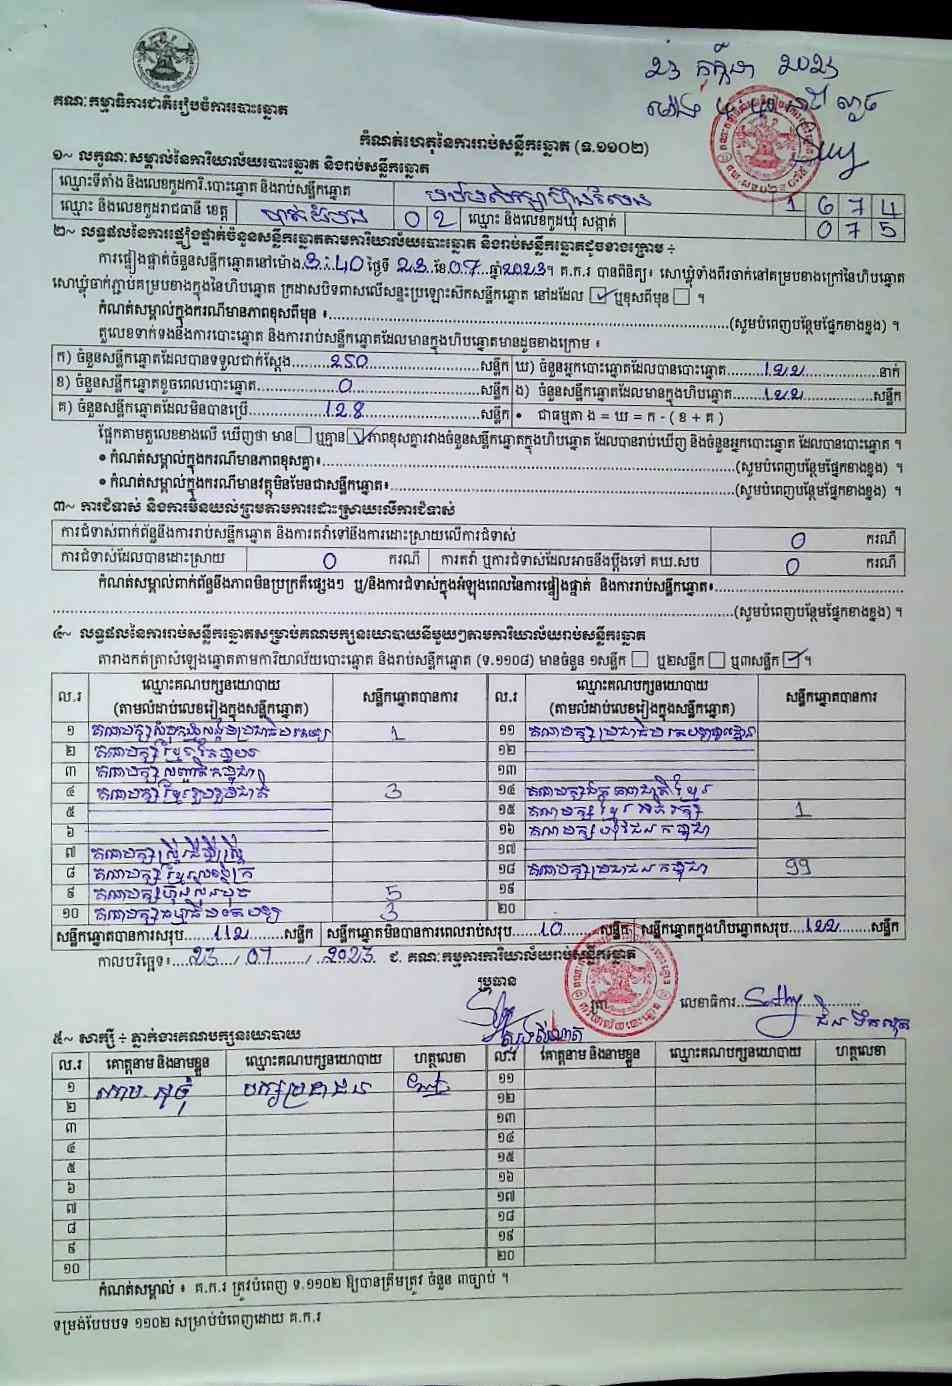 ២៣ កក្កដា ២០២៣
ម៉ោង ៤
គណៈកម្មាធិការជាតិរៀបចំការបោះឆ្នោត
កំណត់ហេតុនៃការរាប់សន្លឹកឆ្នោត (ទ.១១០២)
១~ លក្ខណៈសម្គាល់នៃការិយាល័យបោះឆ្នោត និងរាប់សន្លឹកឆ្នោត
ឈ្មោះទីតាំង និងលេខកូដការិ.បោះឆ្នោត និងរាប់សន្លឹកឆ្នោត 1 6 7 4
ឈ្មោះ និងលេខកូដរាជធានី ខេត្ត បាត់ដំបង 0 2 ឈ្មោះ និងលេខកូដឃុំ សង្កាត់ 0 7 5
២~ លទ្ធផលនៃការផ្ទៀងផ្ទាត់ចំនួនសន្លឹកឆ្នោតតាមការិយាល័យបោះឆ្នោត និងរាប់សន្លឹកឆ្នោតដូចខាងក្រោម ÷
ការផ្ទៀងផ្ទាត់ចំនួនសន្លឹកឆ្នោតនៅម៉ោង 3:40 ថ្ងៃទី 23 ខែ 07 ឆ្នាំ 2023។ គ.ក.រ បានពិនិត្យ៖ សោឃ្លុំទាំងពីរចាក់នៅគម្របខាងក្រៅនៃហិបឆ្នោត
សោឃ្លុំចាក់ភ្ជាប់គម្របខាងក្នុងនៃហិបឆ្នោត ក្រដាសបិទពាសលើសន្ទះប្រឡោះសឹកសន្លឹកឆ្នោត នៅដដែល ☑ ឬខុសពីមុន ☐ ។
កំណត់សម្គាល់ក្នុងករណីមានភាពខុសពីមុន ៖..........(សូមបំពេញបន្ថែមផ្នែកខាងខ្នង) ។
តួលេខទាក់ទងនឹងការបោះឆ្នោត និងការរាប់សន្លឹកឆ្នោតដែលមានក្នុងហិបឆ្នោតមានដូចខាងក្រោម ៖
ក) ចំនួនសន្លឹកឆ្នោតដែលបានទទួលជាក់ស្តែង 250 សន្លឹក ឃ) ចំនួនអ្នកបោះឆ្នោតដែលបានបោះឆ្នោត 122 នាក់
ខ) ចំនួនសន្លឹកឆ្នោតខូចពេលបោះឆ្នោត 0 សន្លឹក ង) ចំនួនសន្លឹកឆ្នោតដែលមានក្នុងហិបឆ្នោត 122 សន្លឹក
គ) ចំនួនសន្លឹកឆ្នោតដែលមិនបានប្រើ 128 សន្លឹក • ជាធម្មតា ង = ឃ = ក - ( ខ + គ )
ផ្អែកតាមតួលេខខាងលើ ឃើញថា មាន ☐ ឬគ្មាន ☑ ភាពខុសគ្នារវាងចំនួនសន្លឹកឆ្នោតក្នុងហិបឆ្នោត ដែលបានរាប់ឃើញ និងចំនួនអ្នកបោះឆ្នោត ដែលបានបោះឆ្នោត ។
• កំណត់សម្គាល់ក្នុងករណីមានភាពខុសគ្នា៖..........(សូមបំពេញបន្ថែមផ្នែកខាងខ្នង) ។
• កំណត់សម្គាល់ក្នុងករណីមានវត្ថុមិនមែនជាសន្លឹកឆ្នោត៖..........(សូមបំពេញបន្ថែមផ្នែកខាងខ្នង) ។
៣~ ការជំទាស់ និងការមិនយល់ព្រមតាមការដោះស្រាយលើការជំទាស់
ការជំទាស់ពាក់ព័ន្ធនឹងការរាប់សន្លឹកឆ្នោត និងការតវ៉ាទៅនឹងការដោះស្រាយលើការជំទាស់ 0 ករណី
ការជំទាស់ដែលបានដោះស្រាយ 0 ករណី ការតវ៉ា ឬការជំទាស់ដែលអាចនឹងប្តឹងទៅ គឃ.សប 0 ករណី
កំណត់សម្គាល់ពាក់ព័ន្ធនឹងភាពមិនប្រក្រតីផ្សេងៗ ឬ/និងការជំទាស់ក្នុងអំឡុងពេលនៃការផ្ទៀងផ្ទាត់ និងការរាប់សន្លឹកឆ្នោត៖..........
..........(សូមបំពេញបន្ថែមផ្នែកខាងខ្នង) ។
៤~ លទ្ធផលនៃការរាប់សន្លឹកឆ្នោតសម្រាប់គណបក្សនយោបាយនីមួយៗតាមការិយាល័យរាប់សន្លឹកឆ្នោត
តារាងកត់ត្រាសំឡេងឆ្នោតតាមការិយាល័យបោះឆ្នោត និងរាប់សន្លឹកឆ្នោត (ទ.១១០៨) មានចំនួន ១សន្លឹក ☐ ឬ២សន្លឹក ☐ ឬ៣សន្លឹក ☑ ។
ល.រ ឈ្មោះគណបក្សនយោបាយ (តាមលំដាប់លេខរៀងក្នុងសន្លឹកឆ្នោត) សន្លឹកឆ្នោតបានការ ល.រ ឈ្មោះគណបក្សនយោបាយ (តាមលំដាប់លេខរៀងក្នុងសន្លឹកឆ្នោត) សន្លឹកឆ្នោតបានការ
១ 1 ១១
២ ១២
៣ ១៣
៤ គណបក្សខ្មែររួបរួមជាតិ 3 ១៤
៥ ១៥ គណបក្សខ្មែរអភិរក្ស 1
៦ ១៦
៧ គណបក្សស្ត្រីដើម្បីស្ត្រី ១៧
៨ ១៨ គណបក្សប្រជាជនកម្ពុជា 99
៩ គណបក្សហ៊្វុនស៊ិនប៉ិច 5 ១៩
១០ គណបក្សធម្មាធិបតេយ្យ 3 ២០
សន្លឹកឆ្នោតបានការសរុប 112 សន្លឹក សន្លឹកឆ្នោតមិនបានការពេលរាប់សរុប 10 សន្លឹក សន្លឹកឆ្នោតក្នុងហិបឆ្នោតសរុប 122 សន្លឹក
កាលបរិច្ឆេទ៖ 23 / 07 / 2023 ជ. គណៈកម្មការការិយាល័យរាប់សន្លឹកឆ្នោត
ប្រធាន
ត្រា លេខាធិការ
៥~ សាក្សី ÷ ភ្នាក់ងារគណបក្សនយោបាយ
ល.រ គោត្តនាម និងនាមខ្លួន ឈ្មោះគណបក្សនយោបាយ ហត្ថលេខា ល.រ គោត្តនាម និងនាមខ្លួន ឈ្មោះគណបក្សនយោបាយ ហត្ថលេខា
១ បក្សប្រជាជន ១១
២ ១២
៣ ១៣
៤ ១៤
៥ ១៥
៦ ១៦
៧ ១៧
៨ ១៨
៩ ១៩
១០ ២០
កំណត់សម្គាល់ ៖ គ.ក.រ ត្រូវបំពេញ ទ.១១០២ ឱ្យបានត្រឹមត្រូវ ចំនួន ៣ច្បាប់ ។
ទម្រង់បែបបទ ១១០២ សម្រាប់បំពេញដោយ គ.ក.រ